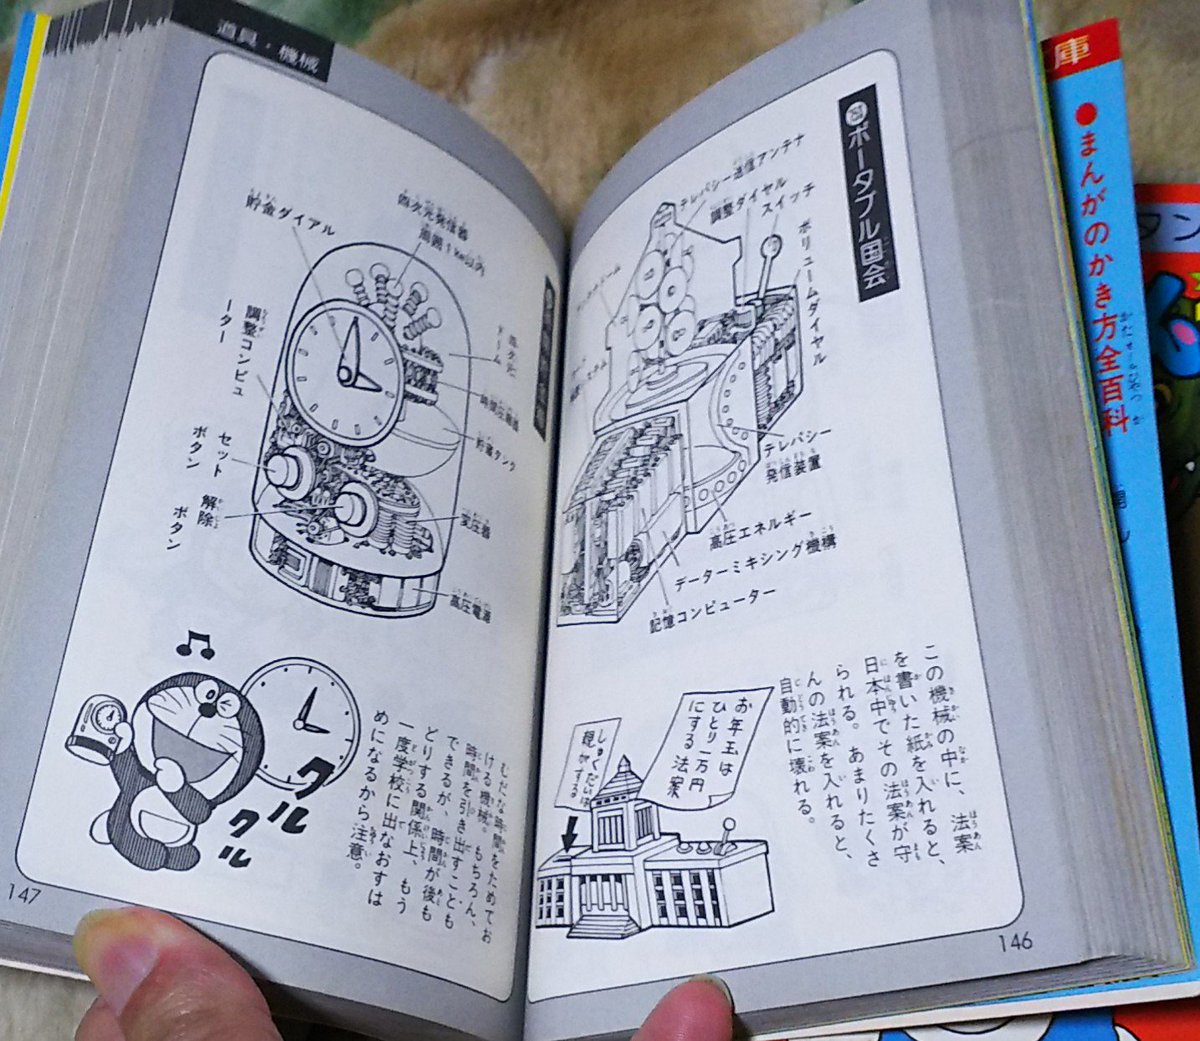 ポータブル国会
テレパシー送信アンテナ
調整ダイヤル
スイッチ
ボリュームダイヤル
テレパシー
発信装置
高圧エネルギー
データーミキシング機構
記憶コンピューター
この機械の中に、法案
を書いた紙を入れると、
日本中でその法案が守
られる。あまりたくさ
んの法案を入れると、
自動的に壊れる。
お年玉は
ひとり一万円
にする法案
しゅくだいは
親がする
146
道具・機械
四次元発信器
周囲1km以内
貯金ダイアル
調整コンピュ
ーター
セット
ボタン
解除
ボタン
貯蓄タンク
変圧器
高圧電源
むだな時間をためてお
ける機械。もちろん、
時間を引き出すことも
できるが、時間が後も
どりする関係上、もう
一度学校に出なおすは
めになるから注意。
クル
クル
147
庫
●まんがのかき方全百科
タン